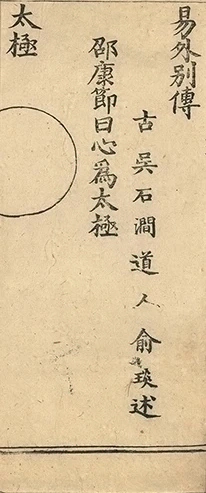 易外別傳
古吳石澗道人俞琰述
邵康節曰心為太極
太極